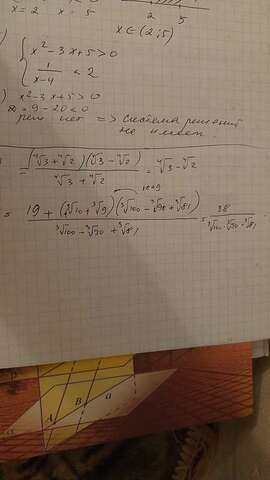 x = 2 x = 5
2 5
x ∈ (2; 5)
)
{ x² - 3x + 5 > 0
1/(x-4) < 2
) x² - 3x + 5 > 0
D = 9 - 20 < 0
реш нет => система решений
не имеет
= (⁴√3 + ⁴√2)(⁴√3 - ⁴√2) / (⁴√3 + ⁴√2) = ⁴√3 - ⁴√2
= 19 + (³√10 + ³√9)(³√100 - ³√90 + ³√81) / (³√100 - ³√90 + ³√81) = 38 / (³√100 - ³√90 + ³√81)
A B a